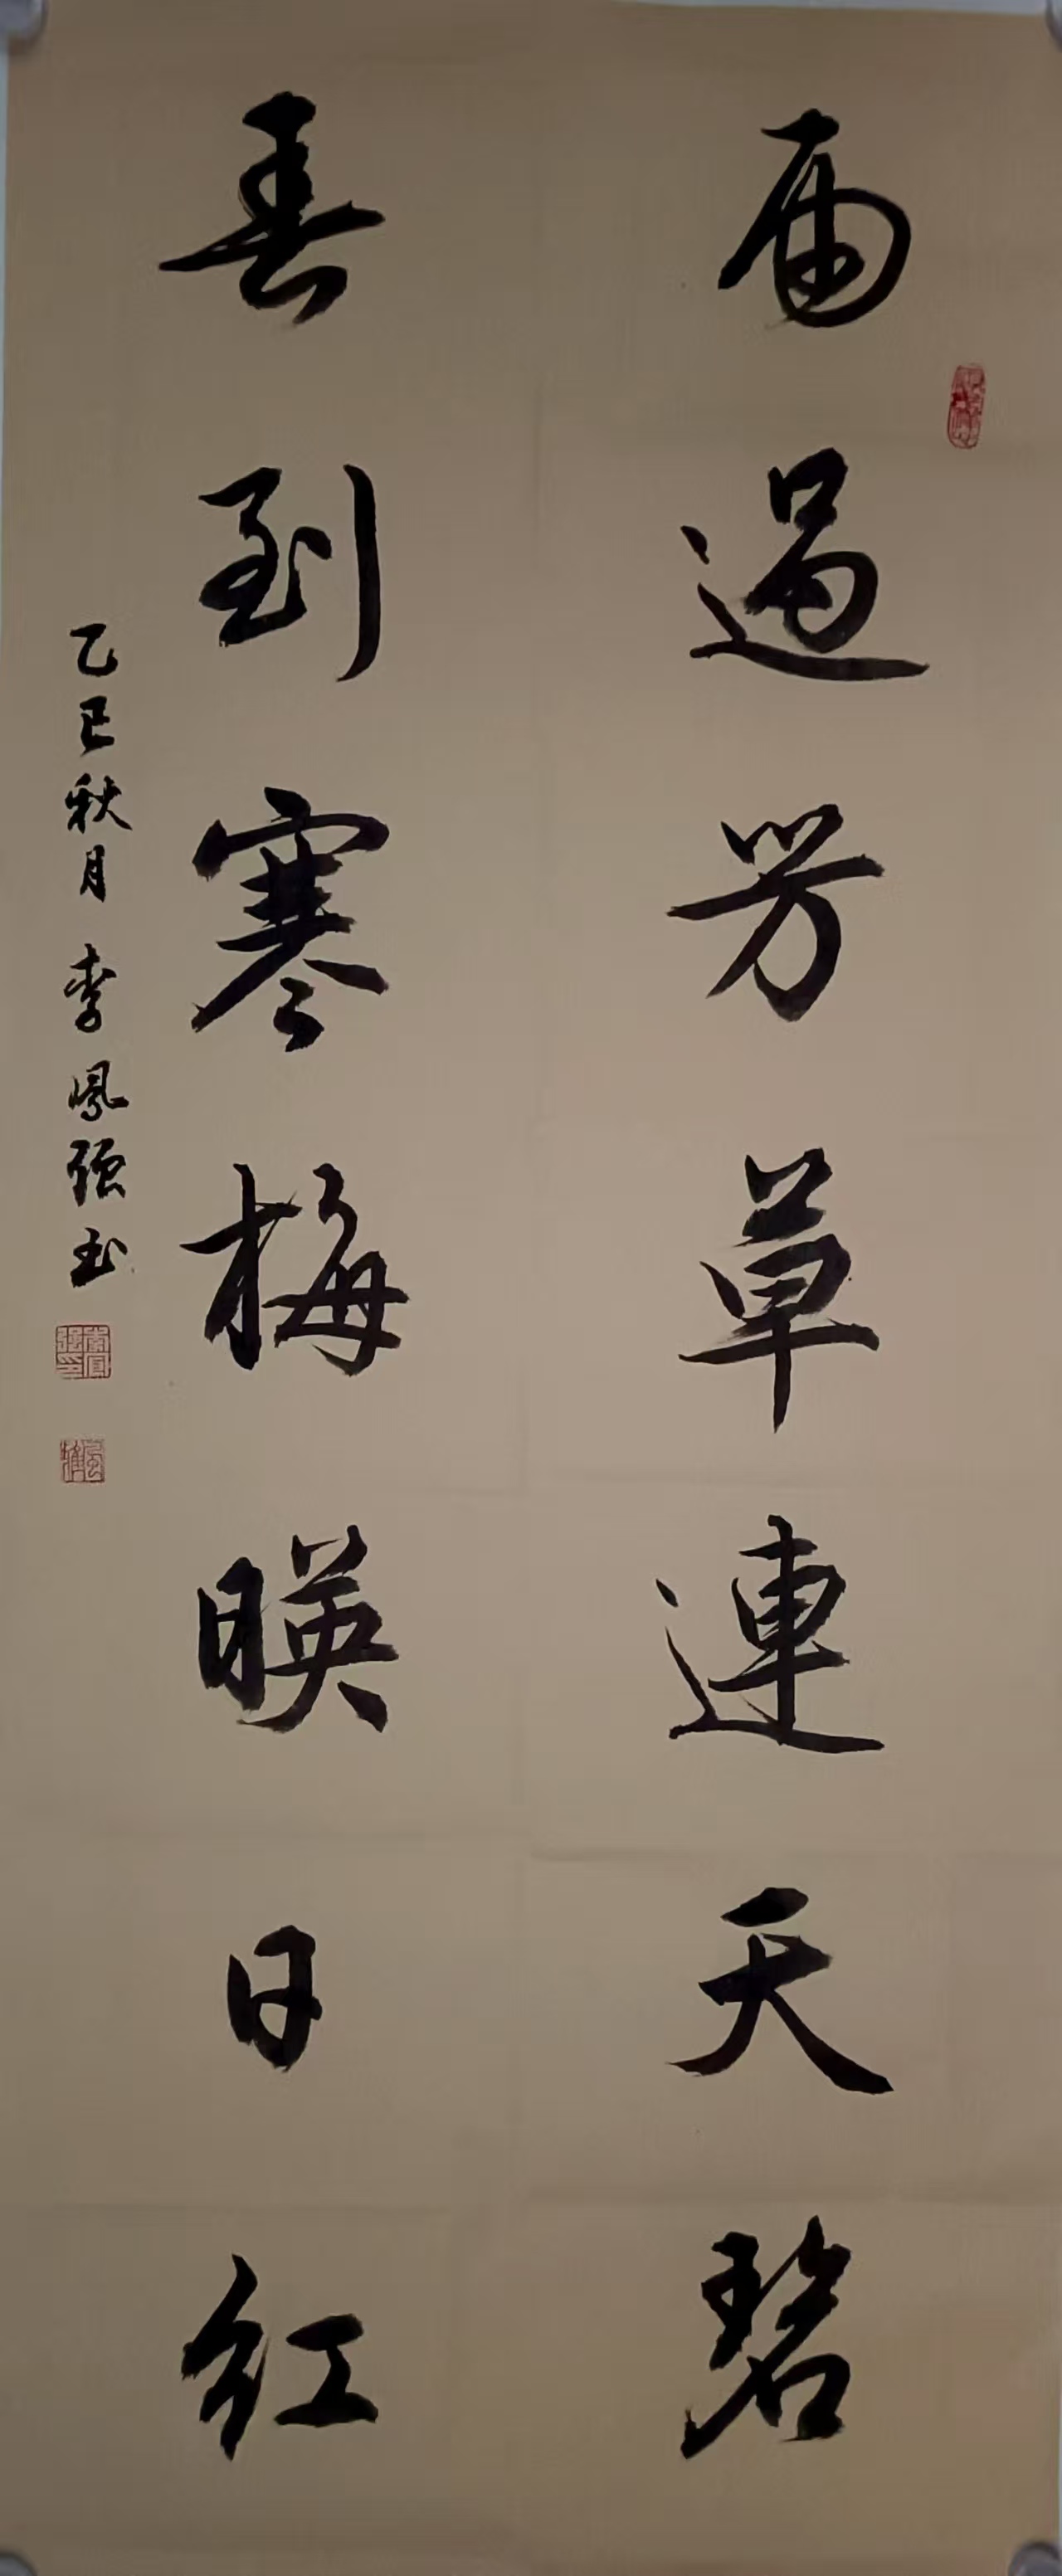 雨過芳草連天碧
春到寒梅暎日紅
乙巳秋月 李鳳强书